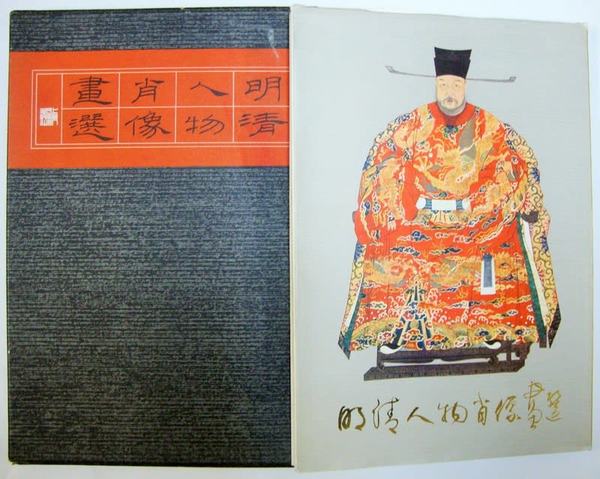 明清
人物
肖像
畫選
明清人物肖像畫選